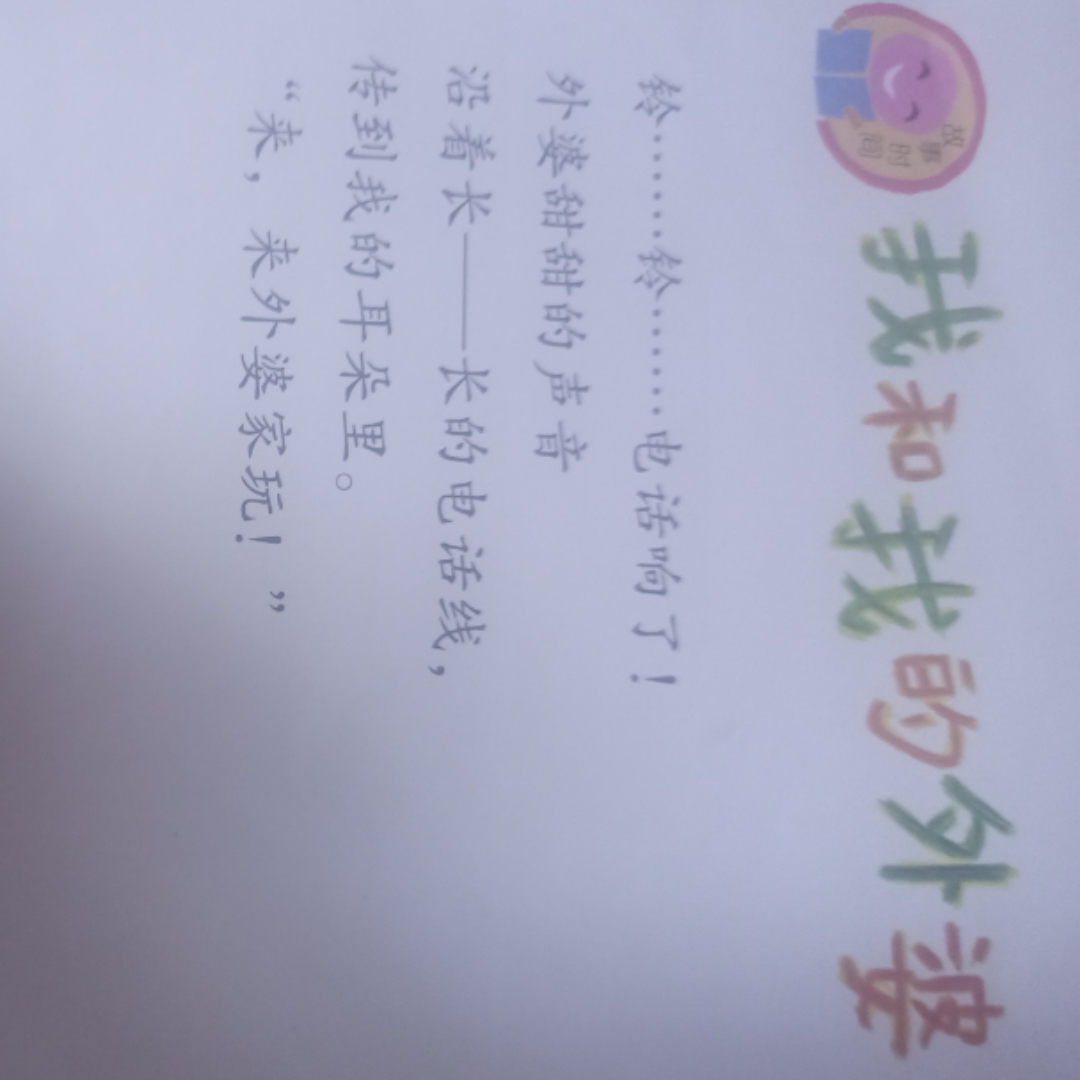 故事时间
我和我的外婆
铃……铃……电话响了！
外婆甜甜的声音
沿着长——长的电话线，
传到我的耳朵里。
“来，来外婆家玩！”